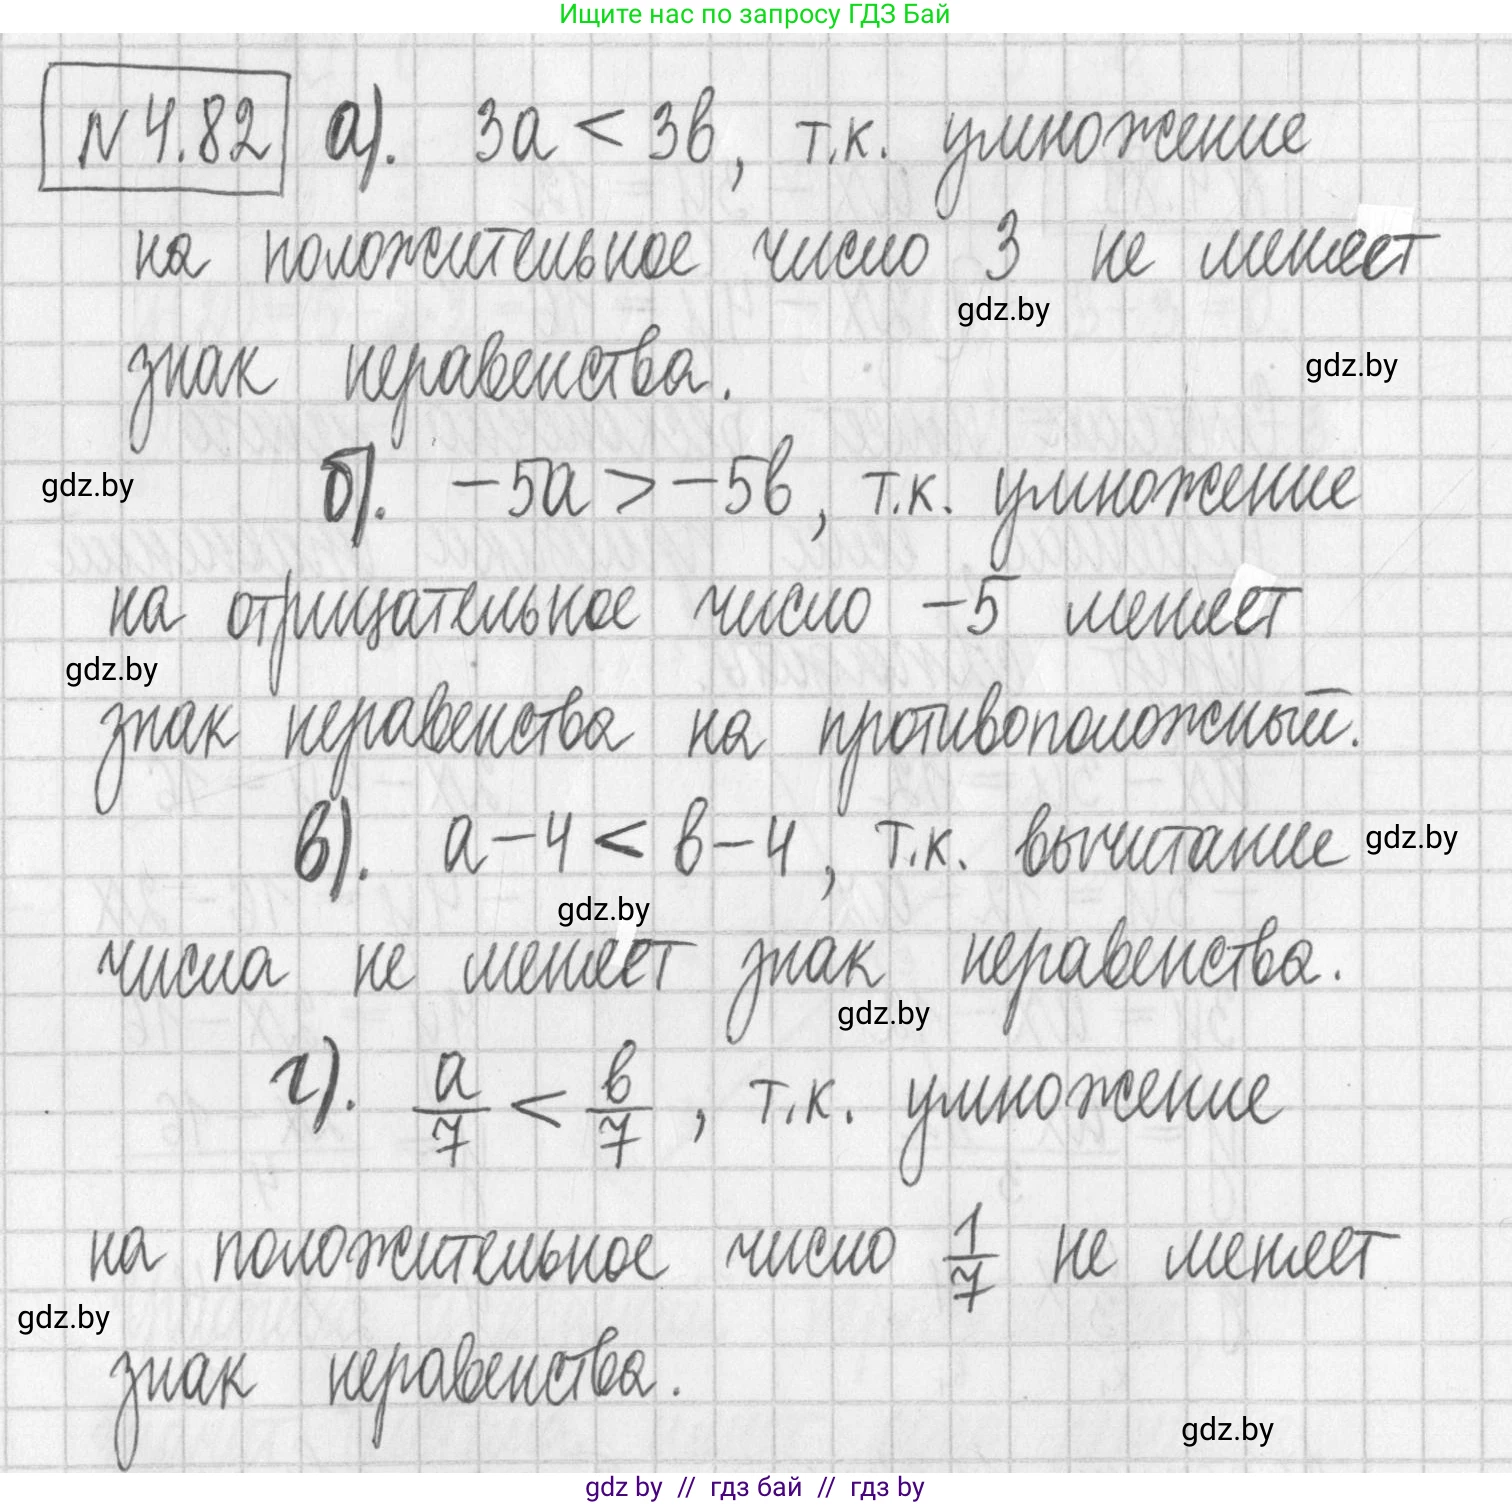 Ищите нас по запросу ГДЗ Бай
№4.82 а). 3а < 3в, т.к. умножение
на положительное число 3 не меняет
gdz.by
знак неравенства.
gdz.by
gdz.by
б). −5а > −5в, т.к. умножение
на отрицательное число −5 меняет
gdz.by
знак неравенства на противоположный.
в). а − 4 < в − 4, т.к. вычитание
gdz.by
gdz.by
числа не меняет знак неравенства.
gdz.by
г). а/7 < в/7, т.к. умножение
на положительное число 1/7 не меняет
gdz.by
знак неравенства.
gdz.by
gdz by // гдз бай // гдз by